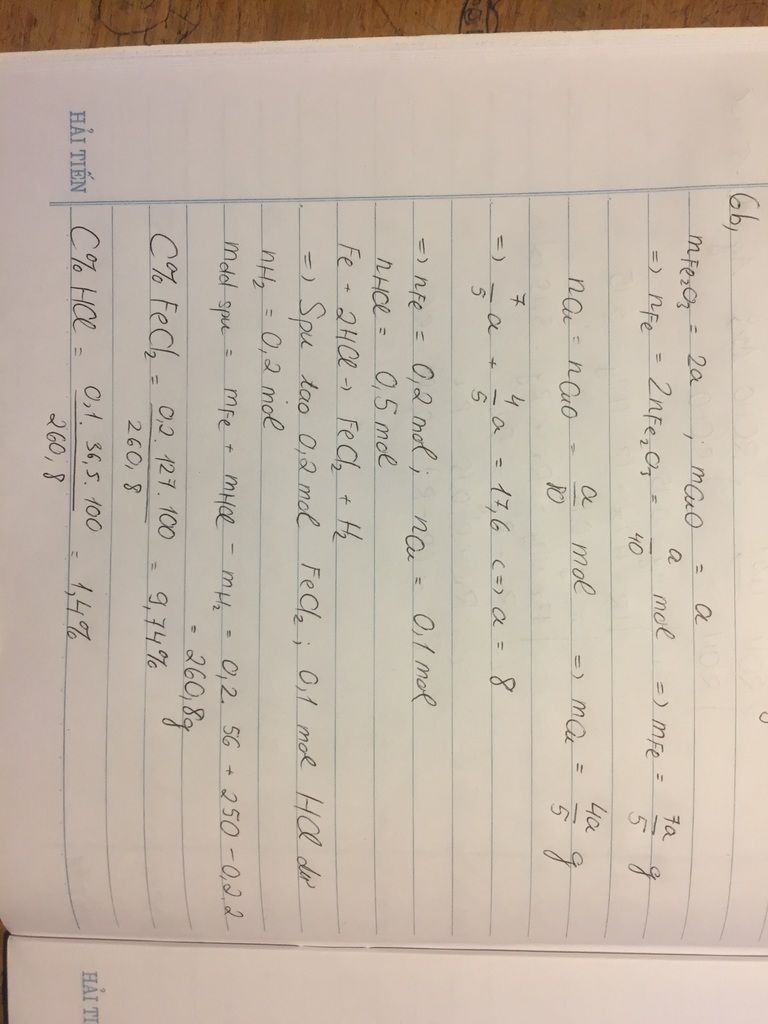 6b,
mFe2O3 = 2a , mCuO = a
=> nFe = 2nFe2O3 = a/40 mol => mFe = 7a/5 g
nCu = nCuO = a/80 mol => mCu = 4a/5 g
=> 7/5 a + 4/5 a = 17,6 <=> a = 8
=> nFe = 0,2 mol ; nCu = 0,1 mol
nHCl = 0,5 mol
Fe + 2HCl -> FeCl2 + H2
=> Spư tạo 0,2 mol FeCl2 ; 0,1 mol HCl dư
nH2 = 0,2 mol
mdd spư = mFe + mHCl - mH2 = 0,2. 56 + 250 - 0,2.2
= 260,8g
C% FeCl2 = 0,2. 127. 100/260,8 = 9,74%
C% HCl = 0,1. 36,5. 100/260,8 = 1,4%
HẢI TIẾN
HẢI TI